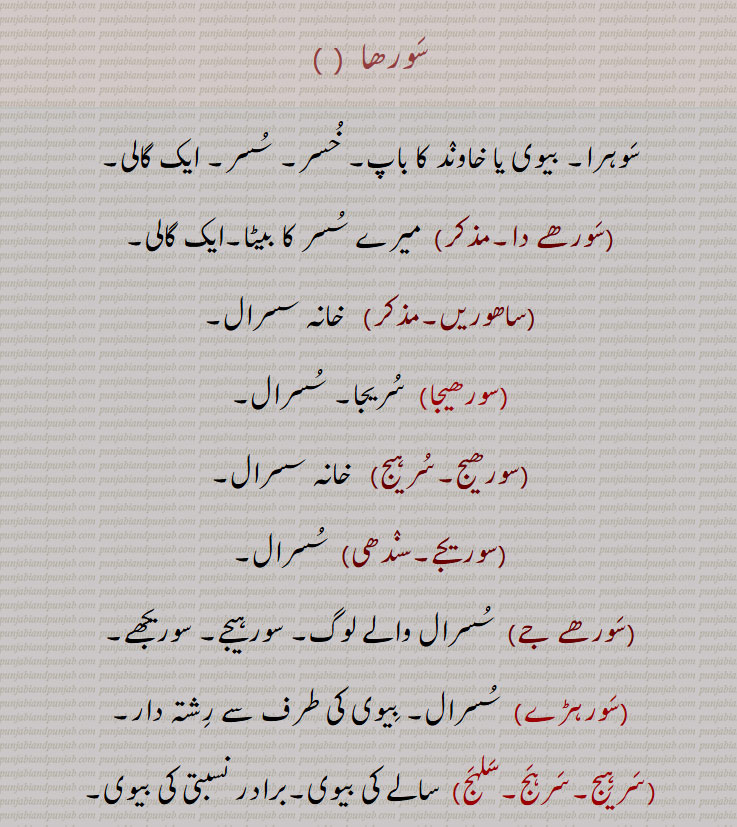 سَورھا ( )
سَوہرا۔ بیوی یا خاونْد کا باپ۔ خُسر۔ سُسر۔ ایک گالی۔
(سَورھے دا۔مذکر) میرے سُسر کا بیٹا۔ایک گالی۔
(ساھوریں۔مذکر) خانہ سسرال۔
(سورھیجا) سُریجا۔ سُسرال۔
(سورھیج۔سُرہیج) خانہ سسرال۔
(سوریجے۔سنْدھی) سُسرال۔
(سَورھے جے) سُسرال والے لوگ۔ سورہیجے۔ سوریجھے۔
(سَورہڑے) سُسرال۔ بِیوی کی طرف سے رِشتہ دار۔
(سَرہِیج۔سَرہَج۔سَلہَج) سالے کی بیوی۔برادر نسبتی کی بیوی۔